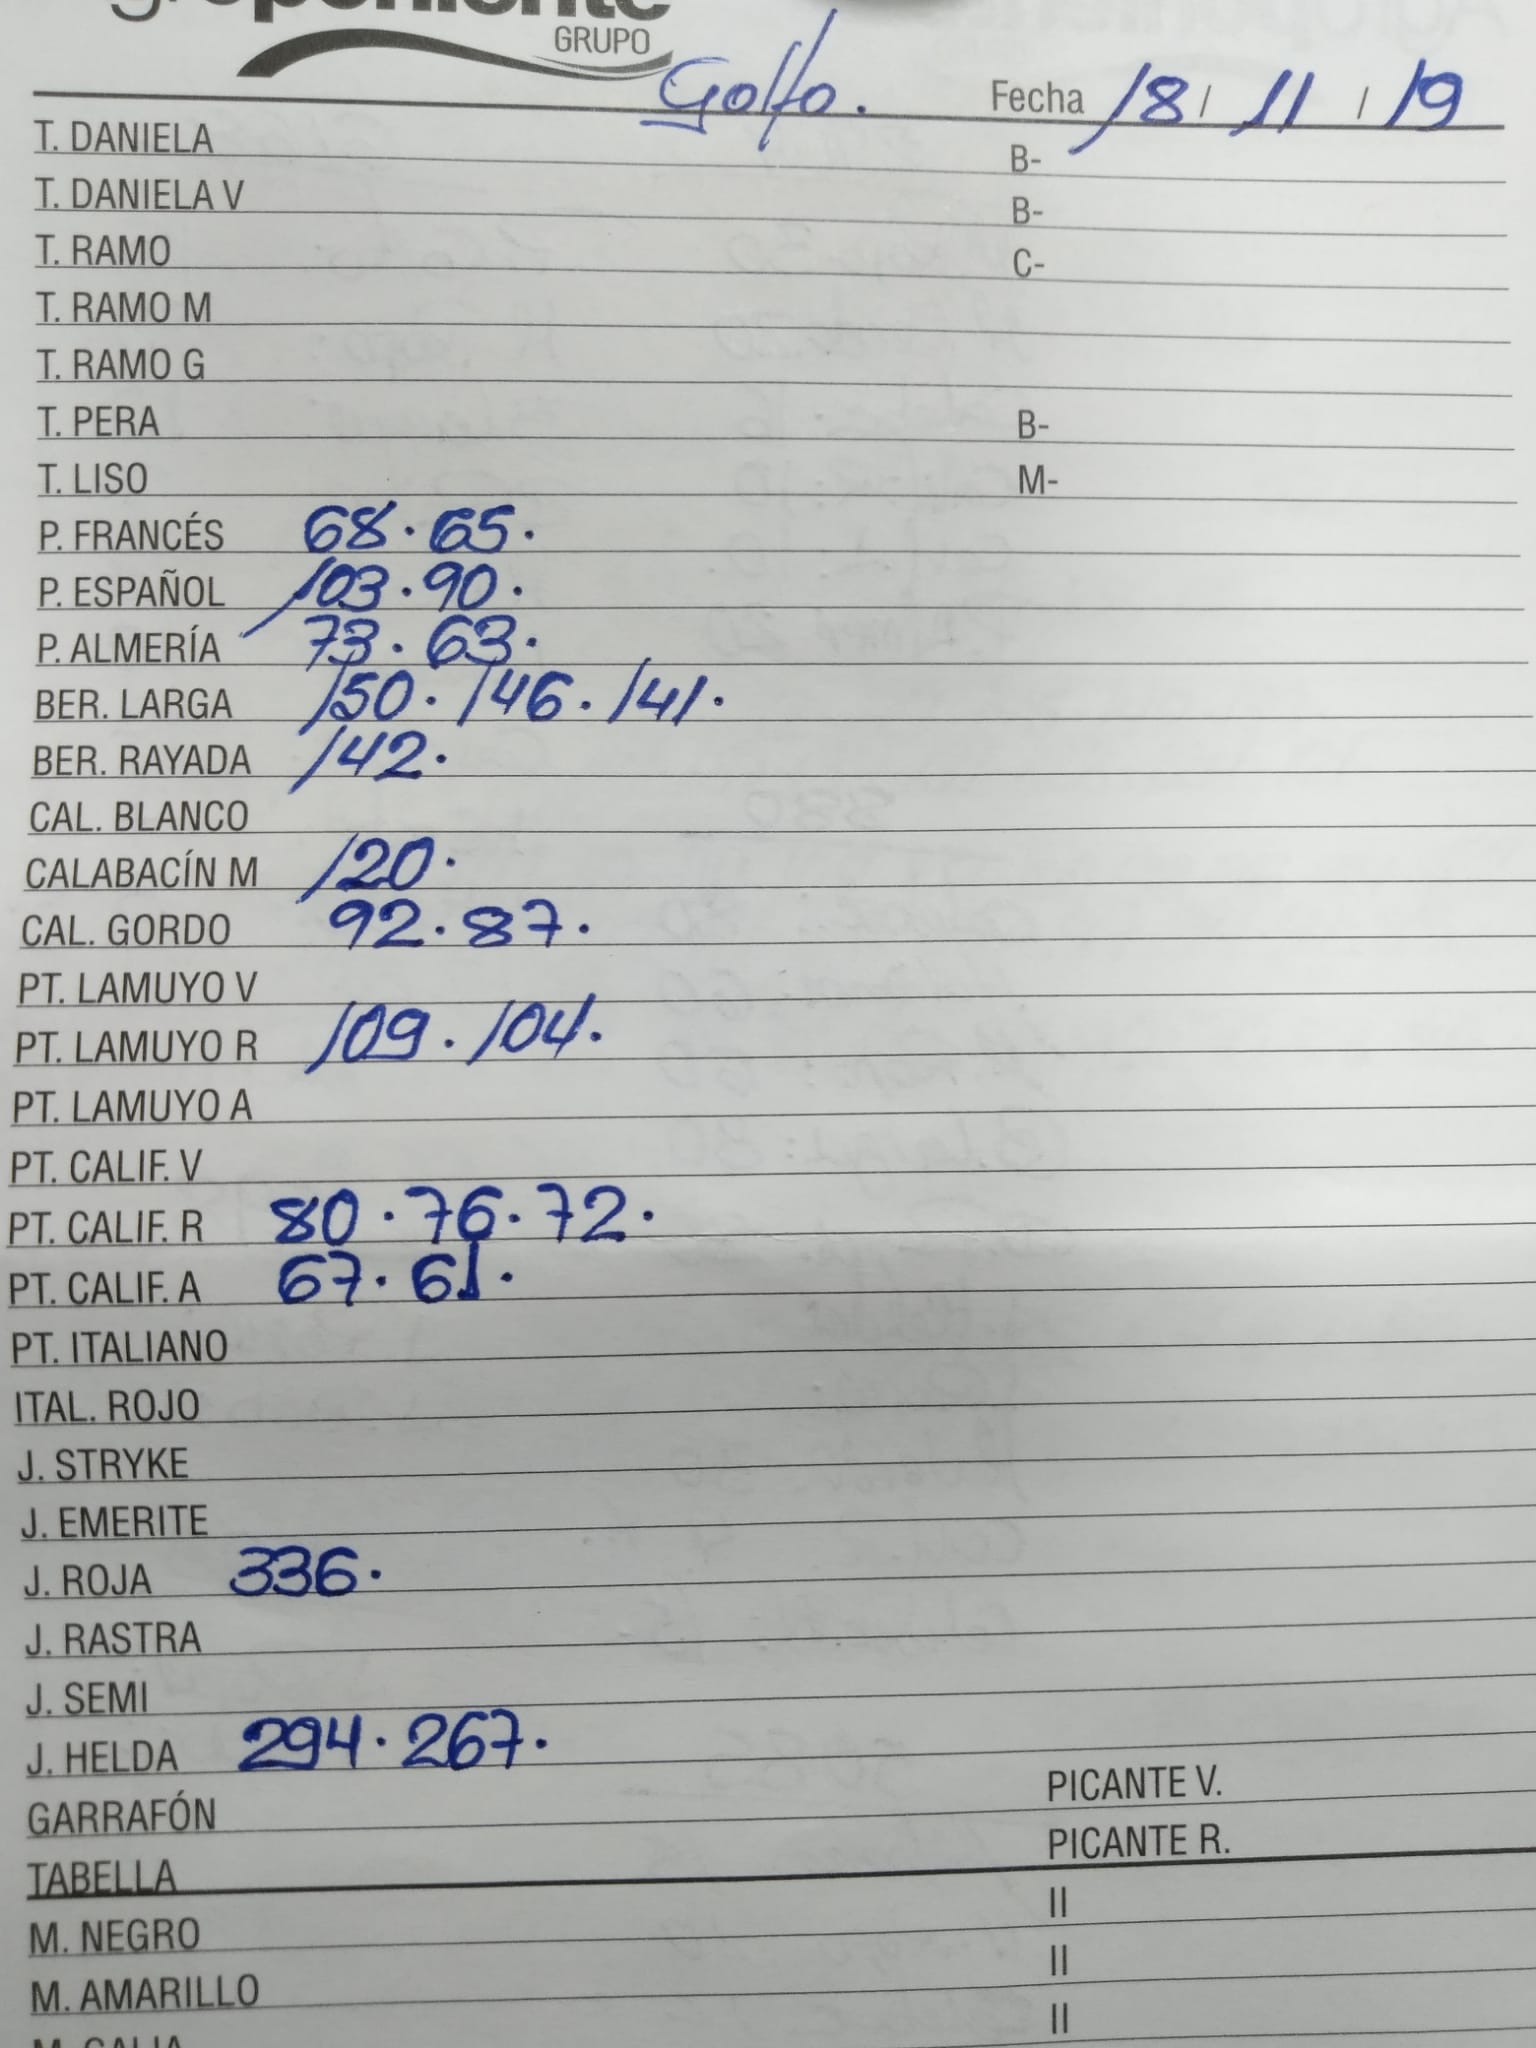 GRUPO
Golfo. Fecha 18 / 11 / 19
T. DANIELA B-
T. DANIELA V B-
T. RAMO C-
T. RAMO M
T. RAMO G
T. PERA B-
T. LISO M-
P. FRANCÉS 68. 65.
P. ESPAÑOL 103. 90.
P. ALMERÍA 73. 63.
BER. LARGA 150. 146. 141.
BER. RAYADA 142.
CAL. BLANCO
CALABACÍN M 120.
CAL. GORDO 92. 87.
PT. LAMUYO V
PT. LAMUYO R 109. 104.
PT. LAMUYO A
PT. CALIF. V
PT. CALIF. R 80. 76. 72.
PT. CALIF. A 67. 61.
PT. ITALIANO
ITAL. ROJO
J. STRYKE
J. EMERITE
J. ROJA 336.
J. RASTRA
J. SEMI
J. HELDA 294. 267.
GARRAFÓN PICANTE V.
TABELLA PICANTE R.
M. NEGRO II
M. AMARILLO II
II